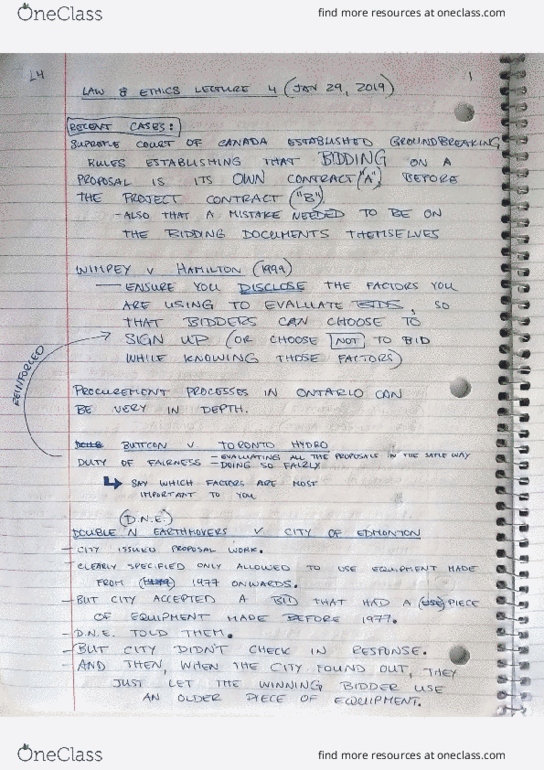 OneClass
find more resources at oneclass.com
L4
1
LAW & ETHICS LECTURE 4 (JAN 29, 2019)
RECENT CASES:
SUPREME COURT OF CANADA ESTABLISHED GROUNDBREAKING
RULES ESTABLISHING THAT BIDDING ON A
PROPOSAL IS ITS OWN CONTRACT ("A") BEFORE
THE PROJECT CONTRACT ("B")
- ALSO THAT A MISTAKE NEEDED TO BE ON
THE BIDDING DOCUMENTS THEMSELVES
WIMPEY V HAMILTON (1999)
— ENSURE YOU DISCLOSE THE FACTORS YOU
ARE USING TO EVALUATE BIDS, SO
THAT BIDDERS CAN CHOOSE TO
SIGN UP (OR CHOOSE NOT TO BID
WHILE KNOWING THOSE FACTORS)
REINFORCED
PROCUREMENT PROCESSES IN ONTARIO CAN
BE VERY IN DEPTH.
BUTTCON V TORONTO HYDRO
DUTY OF FAIRNESS - EVALUATING ALL THE PROPOSALS IN THE SAME WAY
- DOING SO FAIRLY
↳ SAY WHICH FACTORS ARE MOST
IMPORTANT TO YOU
(D.N.E.)
DOUBLE N EARTHMOVERS V CITY OF EDMONTON
- CITY ISSUED PROPOSAL WORK.
- CLEARLY SPECIFIED ONLY ALLOWED TO USE EQUIPMENT MADE
FROM 1977 ONWARDS.
- BUT CITY ACCEPTED A BID THAT HAD A PIECE
OF EQUIPMENT MADE BEFORE 1977.
- D.N.E. TOLD THEM.
- BUT CITY DIDN'T CHECK IN RESPONSE.
- AND THEN, WHEN THE CITY FOUND OUT, THEY
JUST LET THE WINNING BIDDER USE
AN OLDER PIECE OF EQUIPMENT.
OneClass
find more resources at oneclass.com